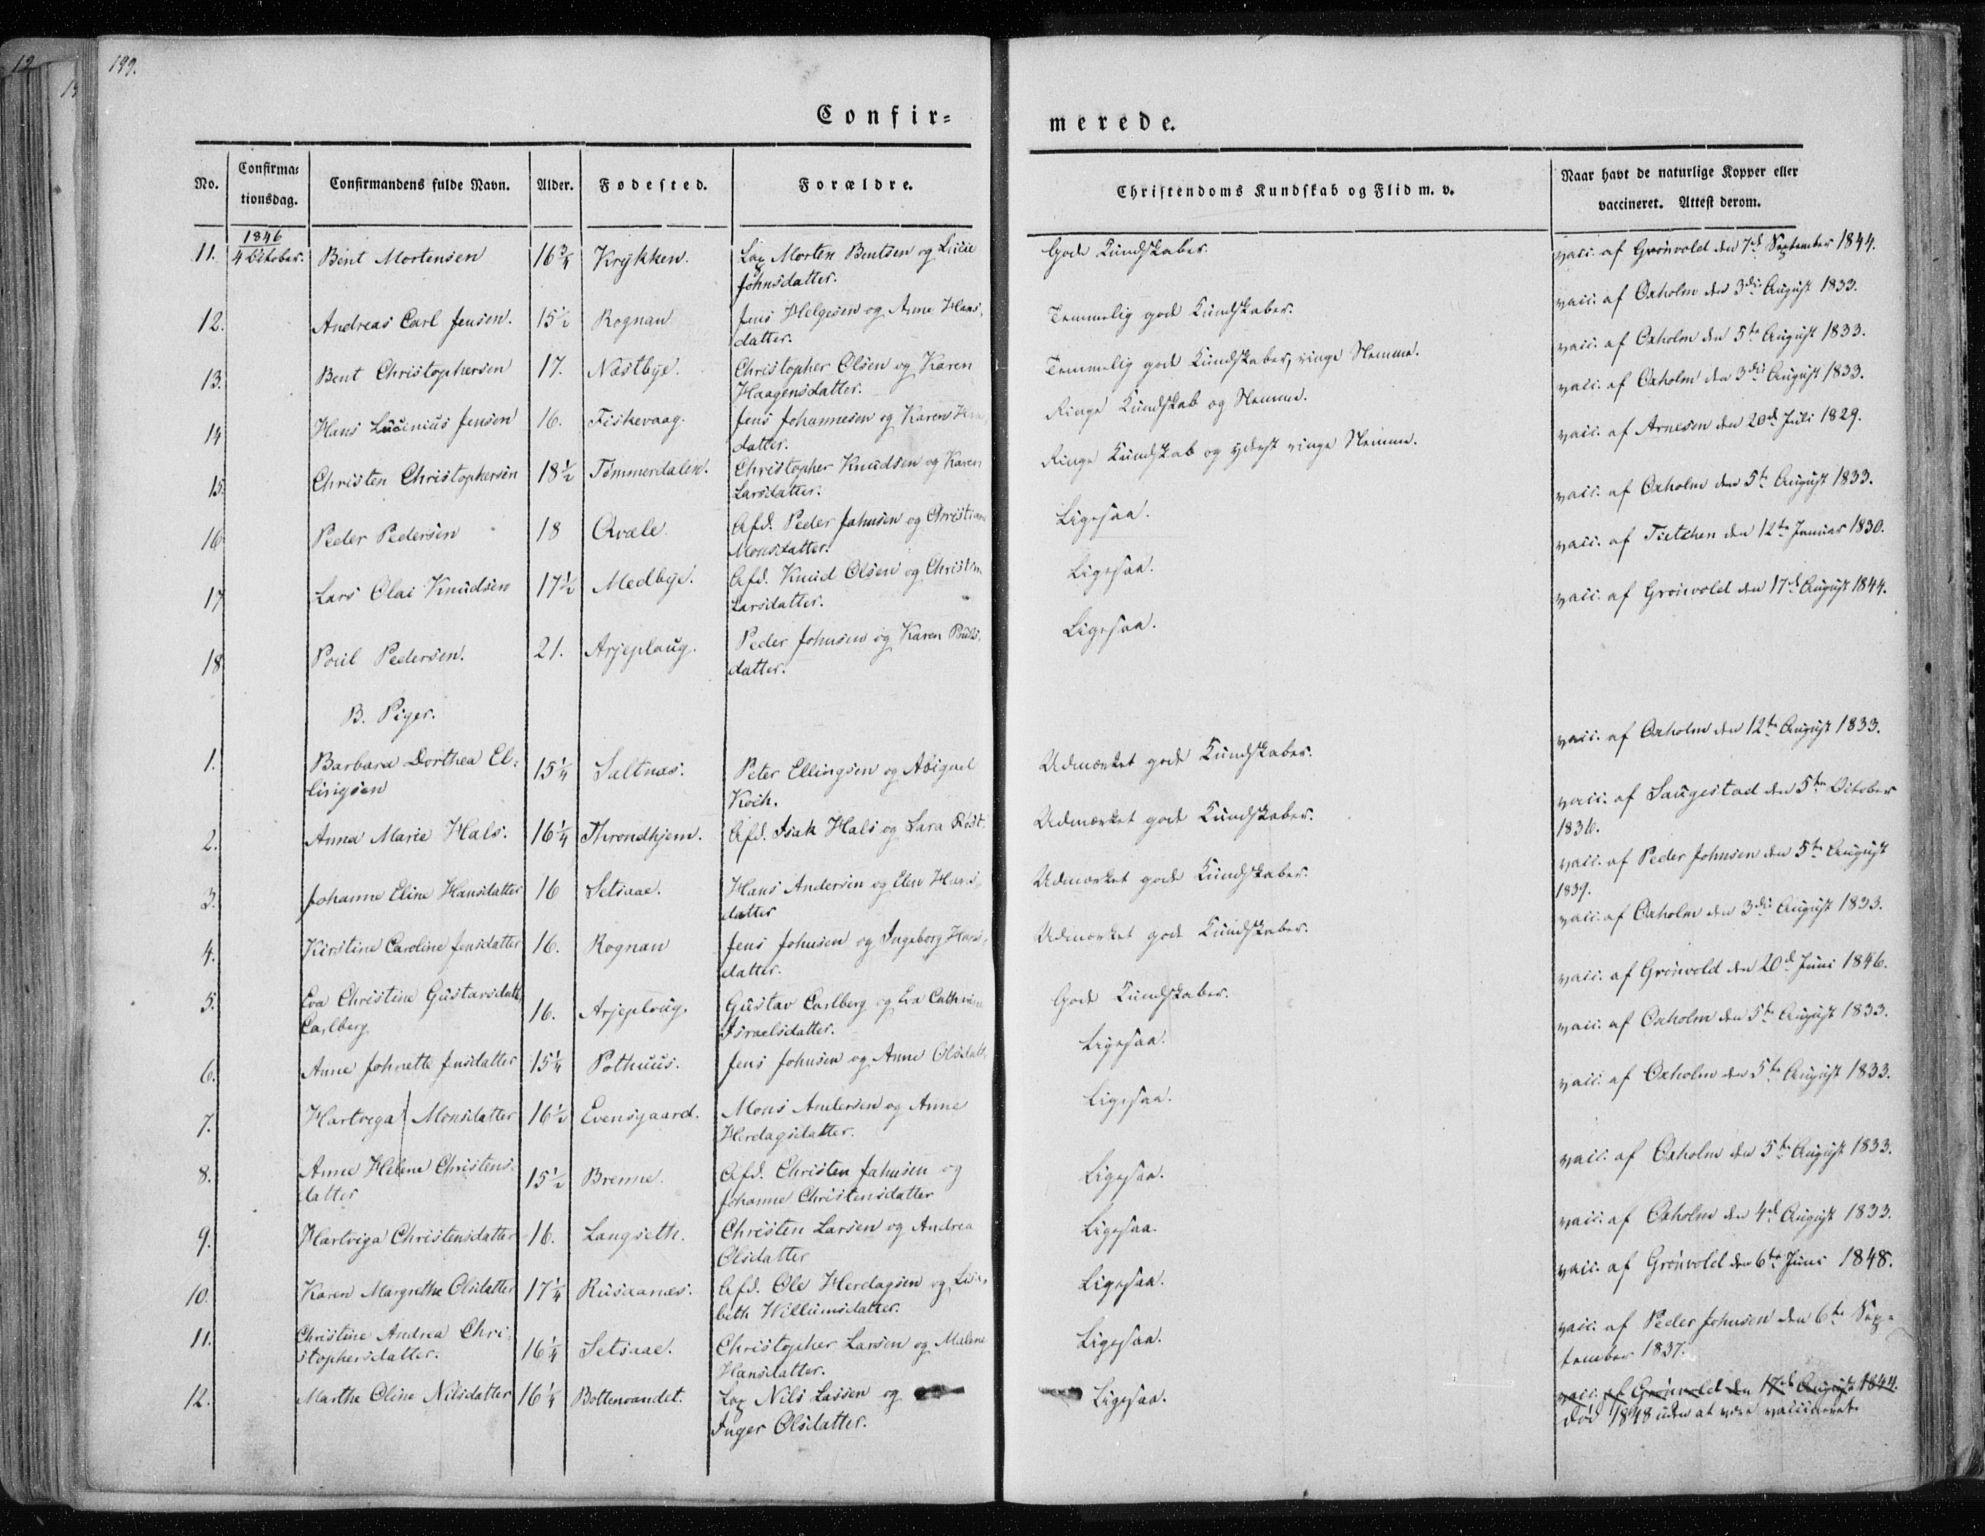 199.
Confir=
merede.
No.
Confirma=
tionsdag.
Confirmandens fulde Navn.
Alder.
Fødested.
Forældre.
Christendoms Kundskab og Flid m. v.
Naar havt de naturlige Kopper eller
vaccineret. Attest derom.
1846
11. 4 October. Bent Mortensen 16¾ Krykken. Lap Morten Bentsen og Lucie
Johnsdatter.
Gode Kundskaber.
vacc. af Grønvold den 7de September 1844.
12. Andreas Carl Jensen. 15½ Rognan Jens Helgesen og Anne Hans,
datter.
Temmelig gode Kundskaber.
vacc. af Oxholm den 3die August 1833.
13. Bent Christophersen 17. Næstbye. Christopher Olsen og Karen
Haagensdatter.
Temmelig gode Kundskaber, ringe Nemme.
vacc. af Oxholm den 5te August 1833.
14 Hans Lucinius Jensen 16. Fiskevaag. Jens Johannesen og Karen
datter.
Ringe Kundskab og Nemme.
vacc. af Oxholm den 3die August 1833.
15. Christen Christophersen 18½ Tømmerdalen. Christopher Knudsen og Karen
Larsdatter.
Ringe Kundskab og yderst ringe Nemme.
vacc. af Arnesen den 20de Juli 1829.
16 Peder Pedersen 18 Qvæle Afd. Peder Johnsen og Christiane
Monsdatter.
Ligesaa.
vacc. af Oxholm den 5te August 1833.
17 Lars Olai Knudsen 17½ Medbye. Afd. Knud Olsen og Christen
Larsdatter.
Ligesaa.
vacc. af Tietchen den 12te Januar 1830.
18 Poul Pedersen. 21. Arjeplaug. Peder Johnsen og Karen Pouls,
datter.
Ligesaa.
vacc. af Grønvold den 17de August 1844.
B. Piger.
1. Barbara Dorthea El=
lingsen 15¼ Saltnæs. Peter Ellingsen og Abigael
Koch.
Udmærket gode Kundskaber.
vacc. af Oxholm den 12te August 1833.
2. Anna Marie Hals. 16¼ Throndhjem. Afd. Isak Hals og Sara
Udmærket gode Kundskaber.
vacc. af Saugestad den 5te October
1836.
3. Johanne Eline Hansdatter 16 Setsaae. Hans Andersen og Elen Hans,
datter
Udmærket gode Kundskaber.
vacc. af Peder Johnsen den 5te August
1839.
4. Kirstine Caroline Jensdatter 16. Rognan Jens Johnsen og Ingeborg Hans,
datter.
Udmærket gode Kundskaber.
vacc. af Oxholm den 3die August 1833.
5. Eva Christine Gustavsdatter
Carlberg. 16. Arjeplaug. Gustav Carlberg og Eva Cathrine
Israelsdatter.
Gode Kundskaber.
vacc. af Grønvold den 20de Juni 1846.
6. Anne Johnette Jensdatter 15¼ Pothuus. Jens Johnsen og Anne Olsdatter
Ligesaa.
vacc. af Oxholm den 5te August 1833.
7. Hartviga Monsdatter 16½ Evensgaard. Mons Andersen og Anne
Herdagsdatter.
Ligesaa.
vacc. af Oxholm den 5te August 1833.
8. Anne Helene Christens,
datter 15½ Brenne. Afd. Christen Johnsen og
Johanne Christensdatter
Ligesaa.
vacc. af Oxholm den 5te August 1833.
9. Hartviga Christensdatter 16. Langseth. Christen Larsen og Andrea
Olsdatter
Ligesaa.
vacc. af Oxholm den 4de August 1833.
10. Karen Margrethe Olsdatter 17¼ Rusaanæs. Afd. Ole Herdagsen og Lisa,
beth Willumsdatter.
Ligesaa.
vacc. af Grønvold den 6te Juni 1848.
11. Christine Andrea Chri,
stophersdatter. 16¼ Setsaae. Christopher Larsen og Malene
Hansdatter.
Ligesaa.
vacc. af Peder Johnsen den 6te Sep=
tember 1837.
12. Marthe Oline Nilsdatter 16¼ Bottenvandet. Lap Nils Lassen og
Inger Olsdatter.
Ligesaa.
vacc. af Grønvold den 17de August 1844.
død 1848 uden at være vaccineret.